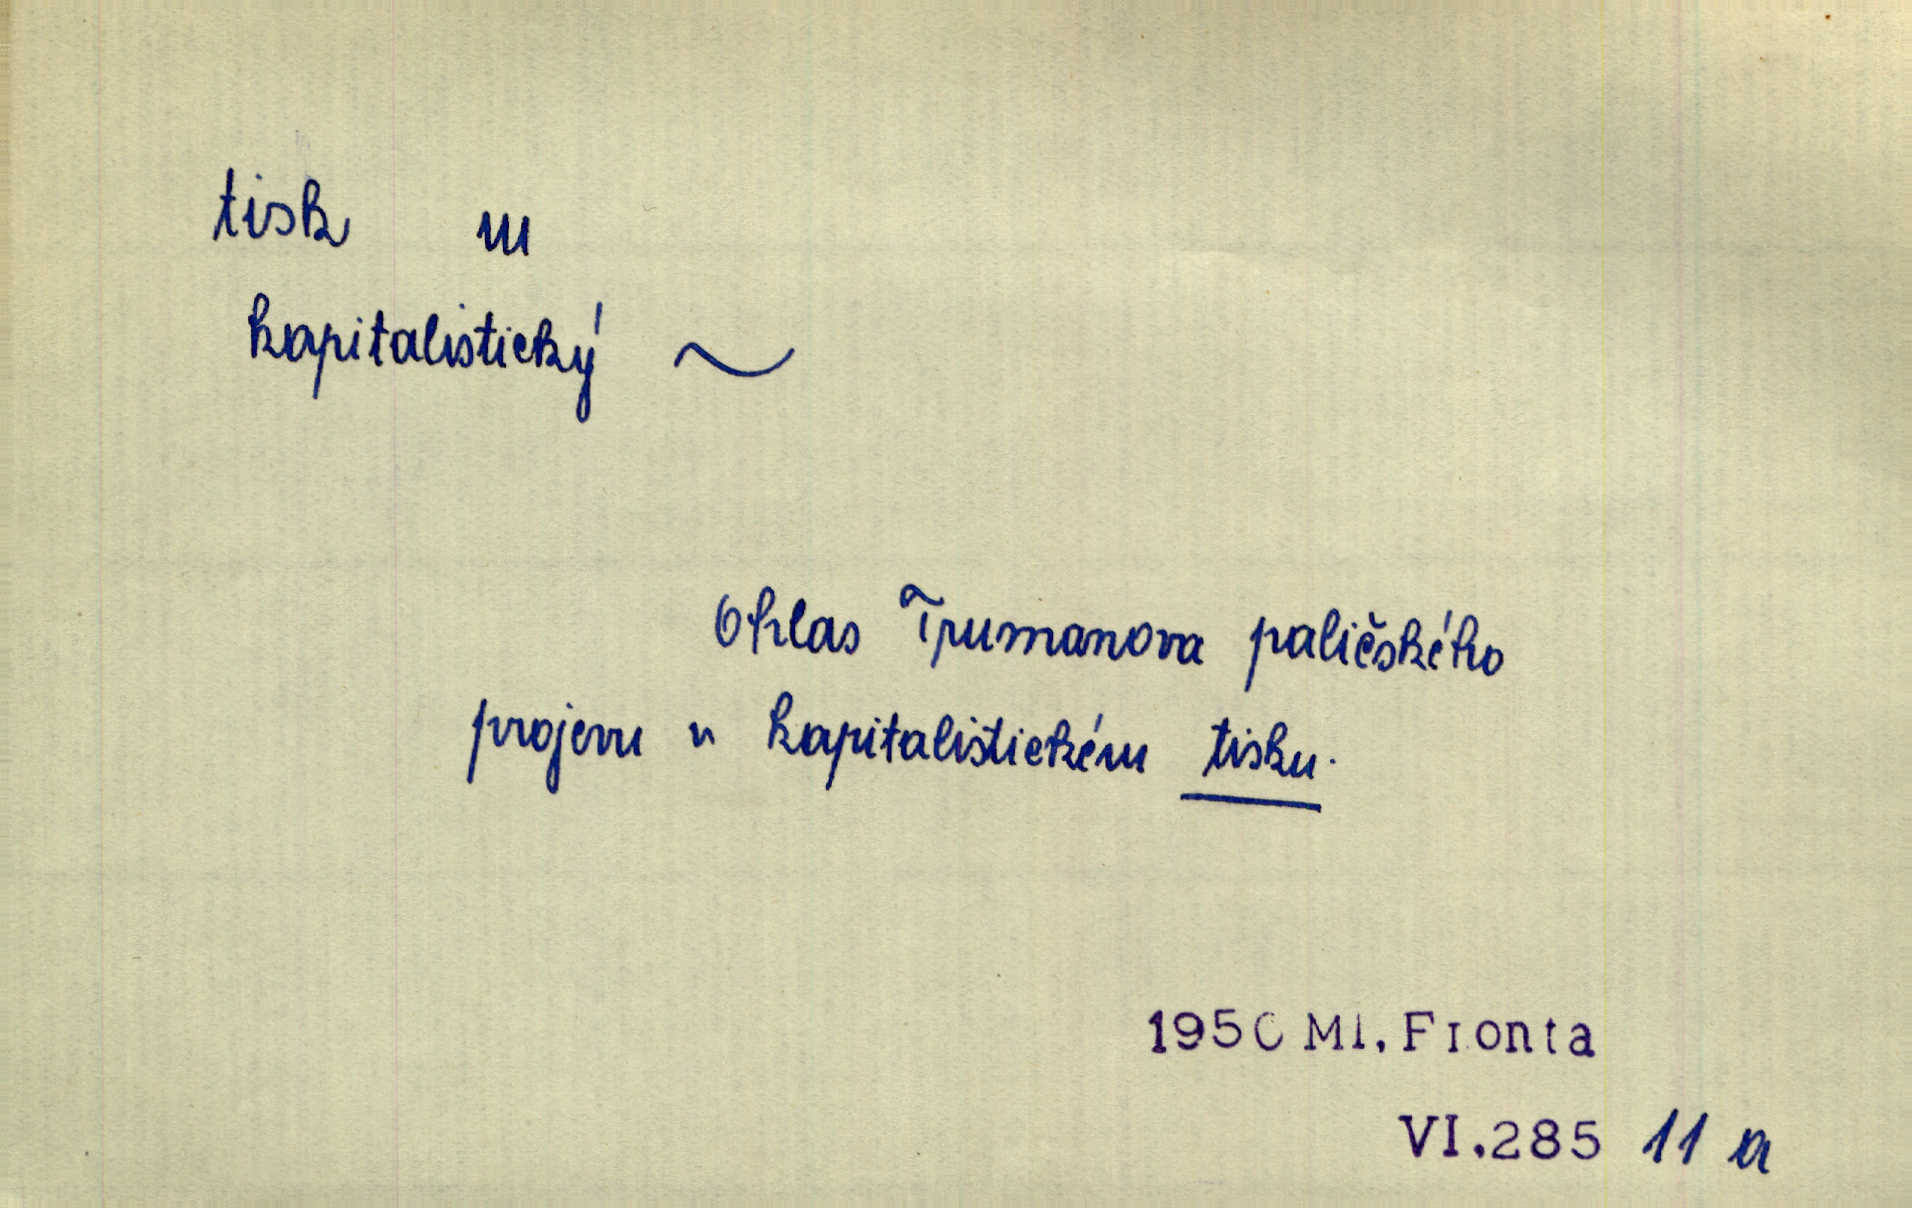 tisk m
kapitalistický ~
Ohlas Trumanova paličského
projevu v kapitalistickém tisku.
1950 Ml. Fronta
VI.285 11 a